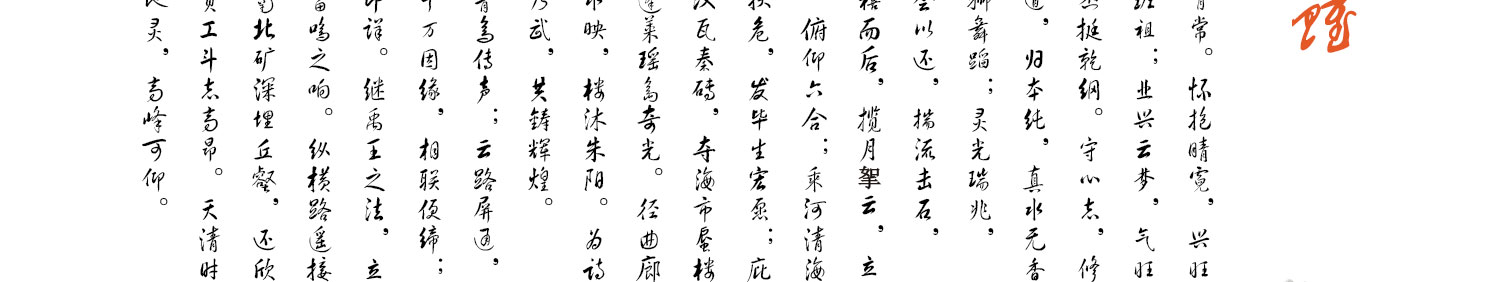 常。怀抱晴霓，兴旺
祖；业兴云梦，气旺
挺乾纲。守心志，修
道，归本纯，真水无香
舞蹈；灵光瑞兆，
以还，揣流击石，
而后，揽月挐云，立
俯仰六合；乘河清海
扶危，发毕生宏愿；庇
汉瓦秦砖，夺海市蜃楼
莱瑶岛奇光。径曲廊
映，楼沐朱阳。为诗
武，共铸辉煌。
青鸟传声；云路屏通，
万因缘，相联缔；
详。继禹王之法，立
鸣之响。纵横路遥接
北矿深埋丘壑，还欣
工斗志高昂。天清时
灵，高峰可仰。